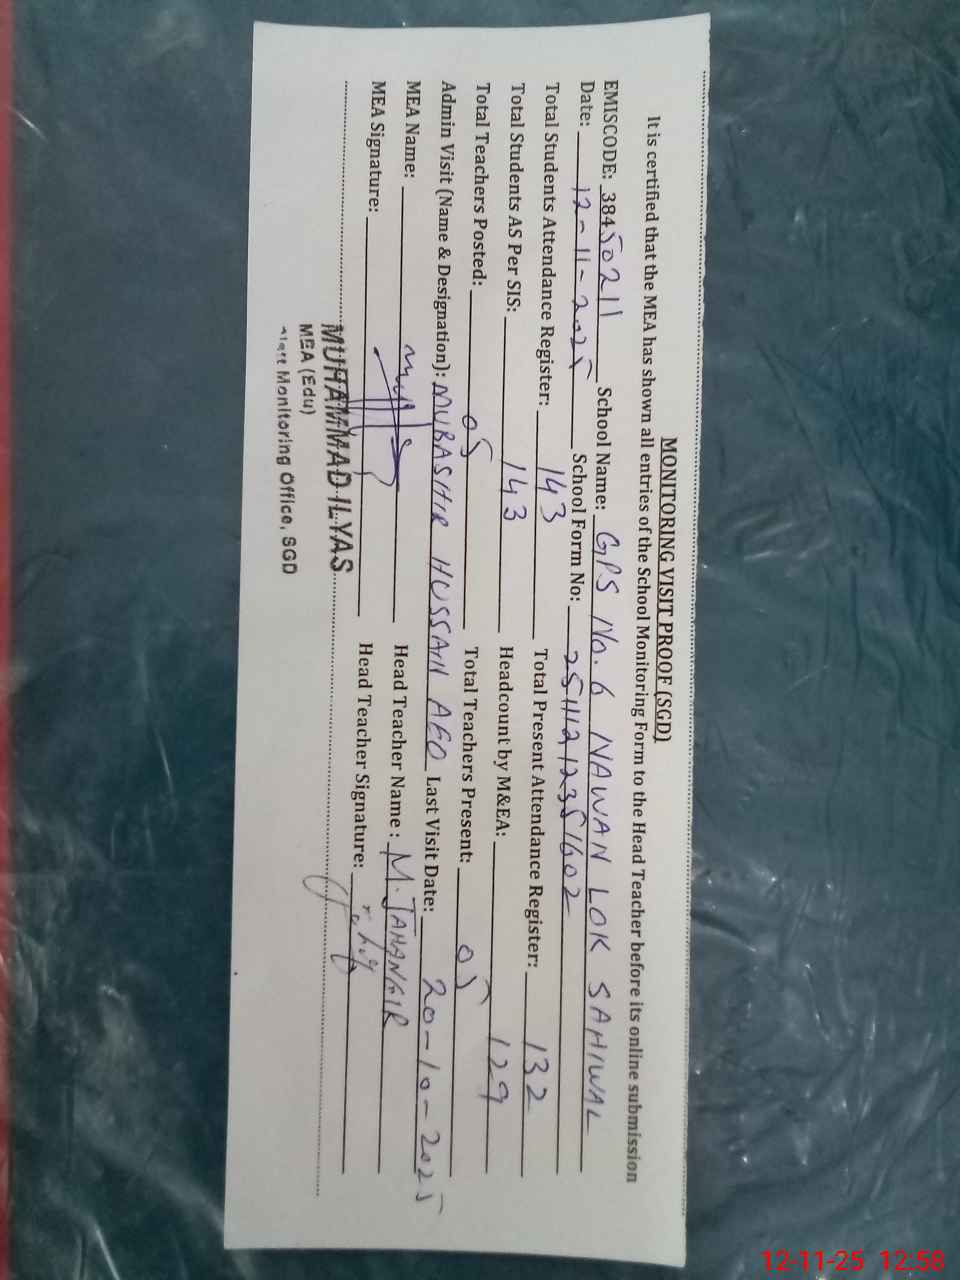 MONITORING VISIT PROOF (SGD)
It is certified that the MEA has shown all entries of the School Monitoring Form to the Head Teacher before its online submission
EMISCODE: 38450211 School Name: GPS No. 6 NAWAN LOK SAHIWAL
Date: 12-11-2025 School Form No: 25111212351602
Total Students Attendance Register: 143 Total Present Attendance Register: 132
Total Students AS Per SIS: 143 Headcount by M&EA: 129
Total Teachers Posted: 05 Total Teachers Present: 05
Admin Visit (Name & Designation): MUBASHIR HUSSAIN AEO Last Visit Date: 20-10-2025
MEA Name: Head Teacher Name : M. JAHANGIR
MEA Signature: Head Teacher Signature:
MUHAMMAD ILYAS
MEA (Edu)
Monitoring Office, SGD
12-11-25 12:58